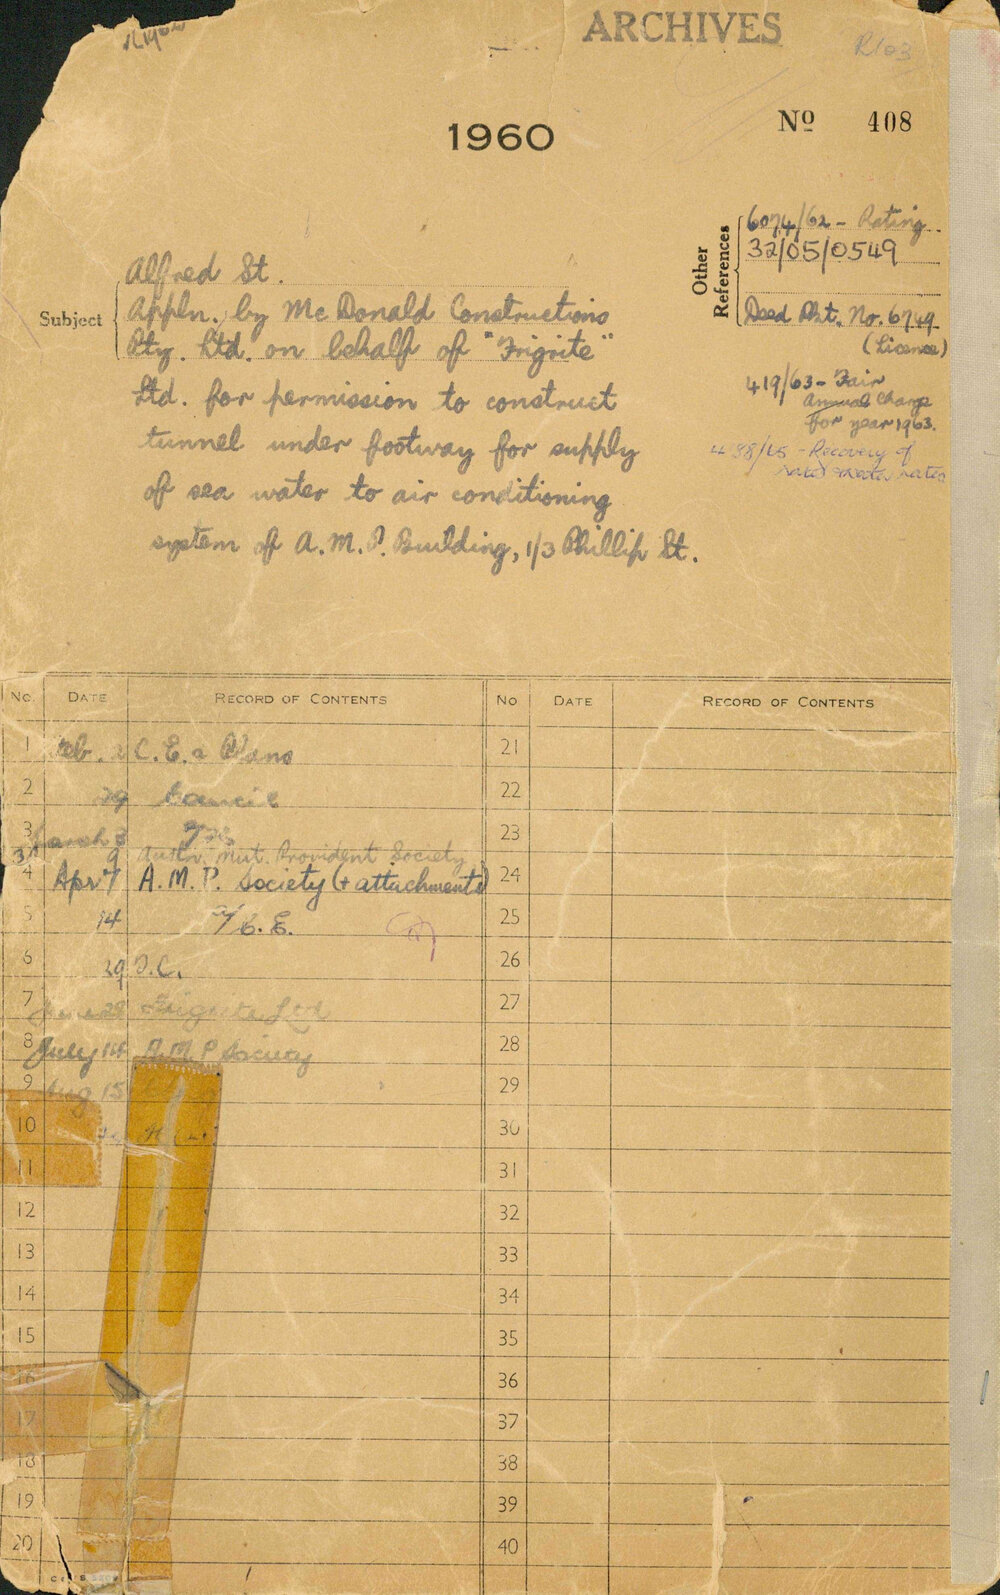 ARCHIVES
R103
1960
Nº 408
Other References
6074/62 - Rating
32/05/0549
Deed Pkt. No. 6749
(Licence)
419/63 - Fair
Annual Charge
for year 1963.
488/65 - Recovery of
rates
Subject
Alfred St.
Appln. by Mc Donald Constructions
Pty. Ltd. on behalf of "Frigrite"
Ltd. for permission to construct
tunnel under footway for supply
of sea water to air conditioning
system of A.M.P. Building, 1/3 Phillip St.
No. DATE RECORD OF CONTENTS No DATE RECORD OF CONTENTS
1 Feb. 2 C. E. a Plans 21
2 29 Council 22
3 March 3 23
3A 9 Austn. Mut. Provident Society
4 Apr 7 A. M. P. Society (+ attachments) 24
5 14 C. E. 25
6 29 26
7 June 28 Frigrite Ltd 27
8 July 14 A.M.P Society 28
9 Aug 15 29
10 30
11 31
12 32
13 33
14 34
15 35
16 36
17 37
18 38
19 39
20 40